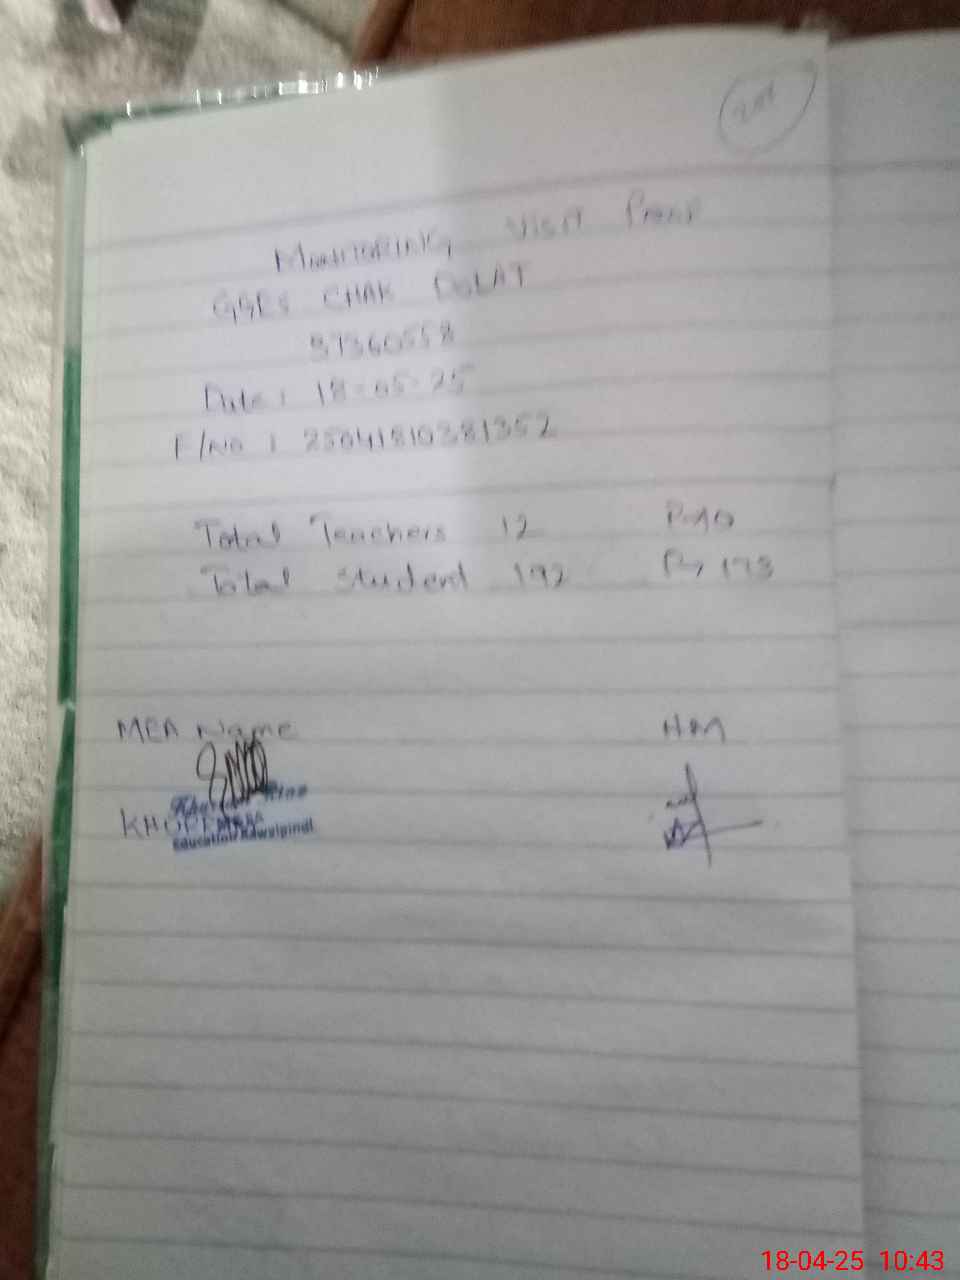 MONITORING VISIT PROOF
GGES CHAK DOLAT
37360558
Date: 18-05-25
F/No : 25041810381352
Total Teachers 12 P→10
Total Student 192 P→173
MEA Name HM
Education Rawalpindi
18-04-25 10:43